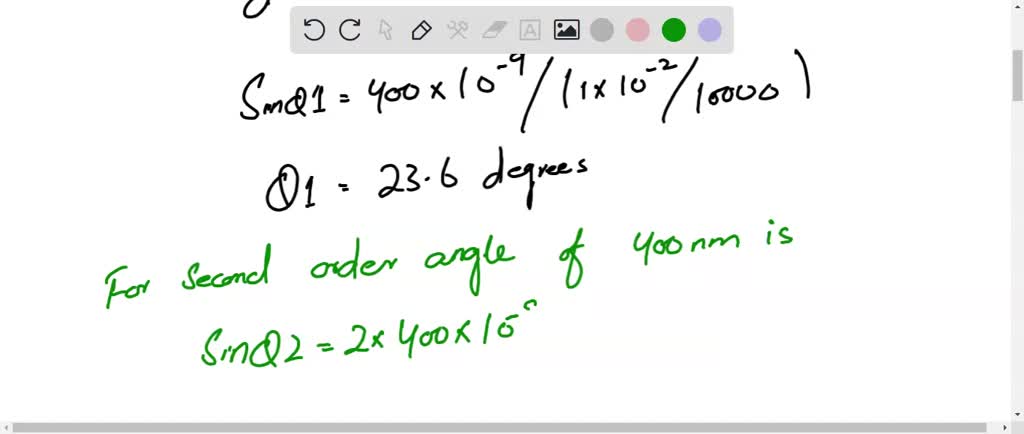 SinΘ1 = 400 × 10^-9 / (1 × 10^-2 / 10000)
Θ1 = 23.6 degrees
For second order angle of 400nm is
SinΘ2 = 2 × 400 × 10^-